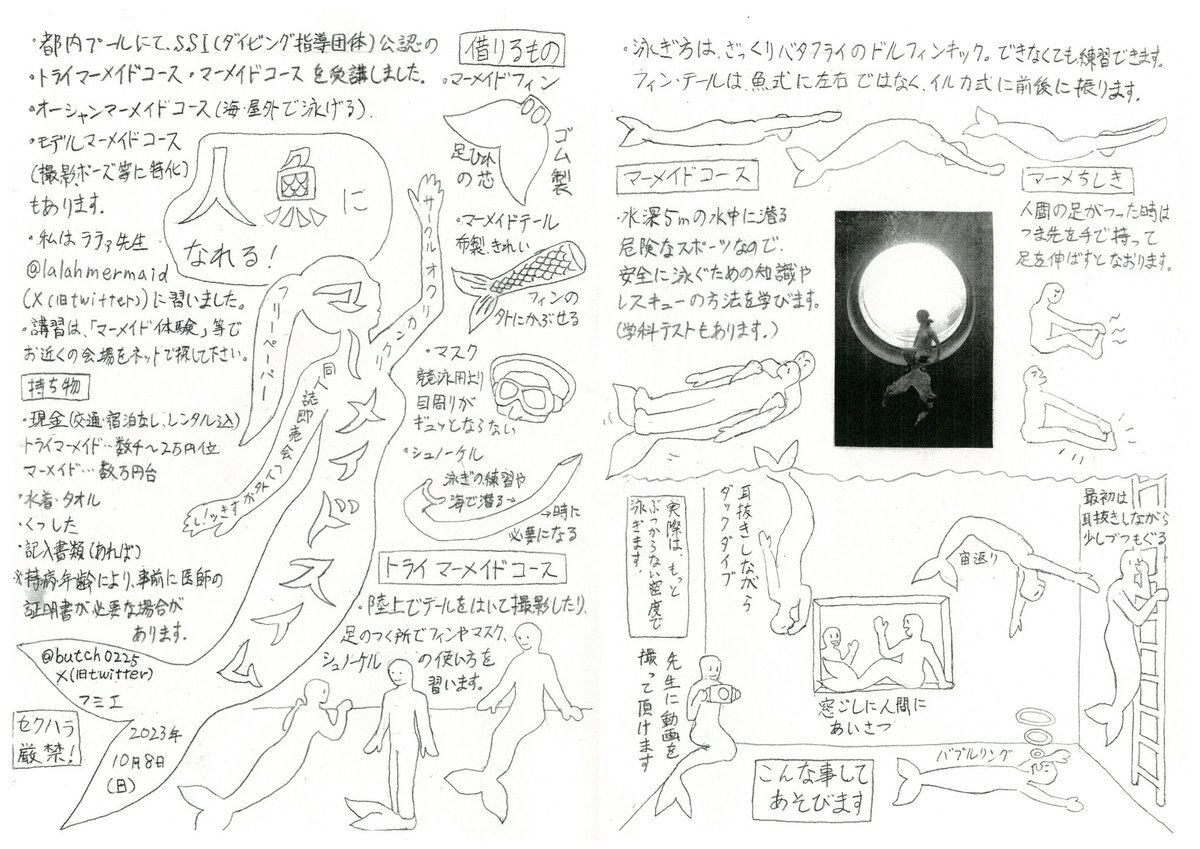 ・都内プールにて、SSI(ダイビング指導団体)公認の
・トライマーメイドコース・マーメイドコースを受講しました。
・オーシャンマーメイドコース(海・屋外で泳げる)
・モデルマーメイドコース
(撮影、ポーズ等に特化)
もあります。
・私はララァ先生
@lalahmermaid
(X(旧twitter))に習いました。
・講習は、「マーメイド体験」等で
お近くの会場をネットで探して下さい。
人魚に
なれる!
持ち物
・現金(交通・宿泊なし、レンタル込)
トライマーメイド…数千〜2万円位
マーメイド…数万円台
・水着・タオル
・くつした
・記入書類(あれば)
※持病・年齢により、事前に医師の
証明書が必要な場合が
あります。
@butch0225
X(旧twitter)
フミエ
2023年
10月8日
(日)
セクハラ
厳禁!
フリーペーパー
サークルオフリカンクリ
同人誌即売会
メイドスイム
借りるもの
・マーメイドフィン
足ひれ
の芯
ゴム製
・マーメイドテール
布製、きれい
フィンの
外にかぶせる
・マスク
競泳用より
目周りが
ギュッとならない
・シュノーケル
泳ぎの練習や
海で潜る→
→時に
必要になる
トライマーメイドコース
・陸上でテールをはいて撮影したり、
足のつく所でフィンやマスク、
シュノーケルの使い方を
習います。
・泳ぎ方は、ざっくりバタフライのドルフィンキック。できなくても練習できます。
フィン・テールは、魚式に左右ではなく、イルカ式に前後に振ります。
マーメイドコース
・水深5mの水中に潜る
危険なスポーツなので、
安全に泳ぐための知識や
レスキューの方法を学びます。
(学科テストもあります。)
マーメちしき
人間の足がつった時は
つま先を手で持って
足を伸ばすとなおります。
実際は、もっと
ぶつからない密度で
泳ぎます。
耳抜きしながら
ダックダイブ
宙返り
最初は
耳抜きしながら
少しづつもぐる
先生に動画を
撮って頂けます
窓ごしに人間に
あいさつ
バブルリング
こんな事して
あそびます